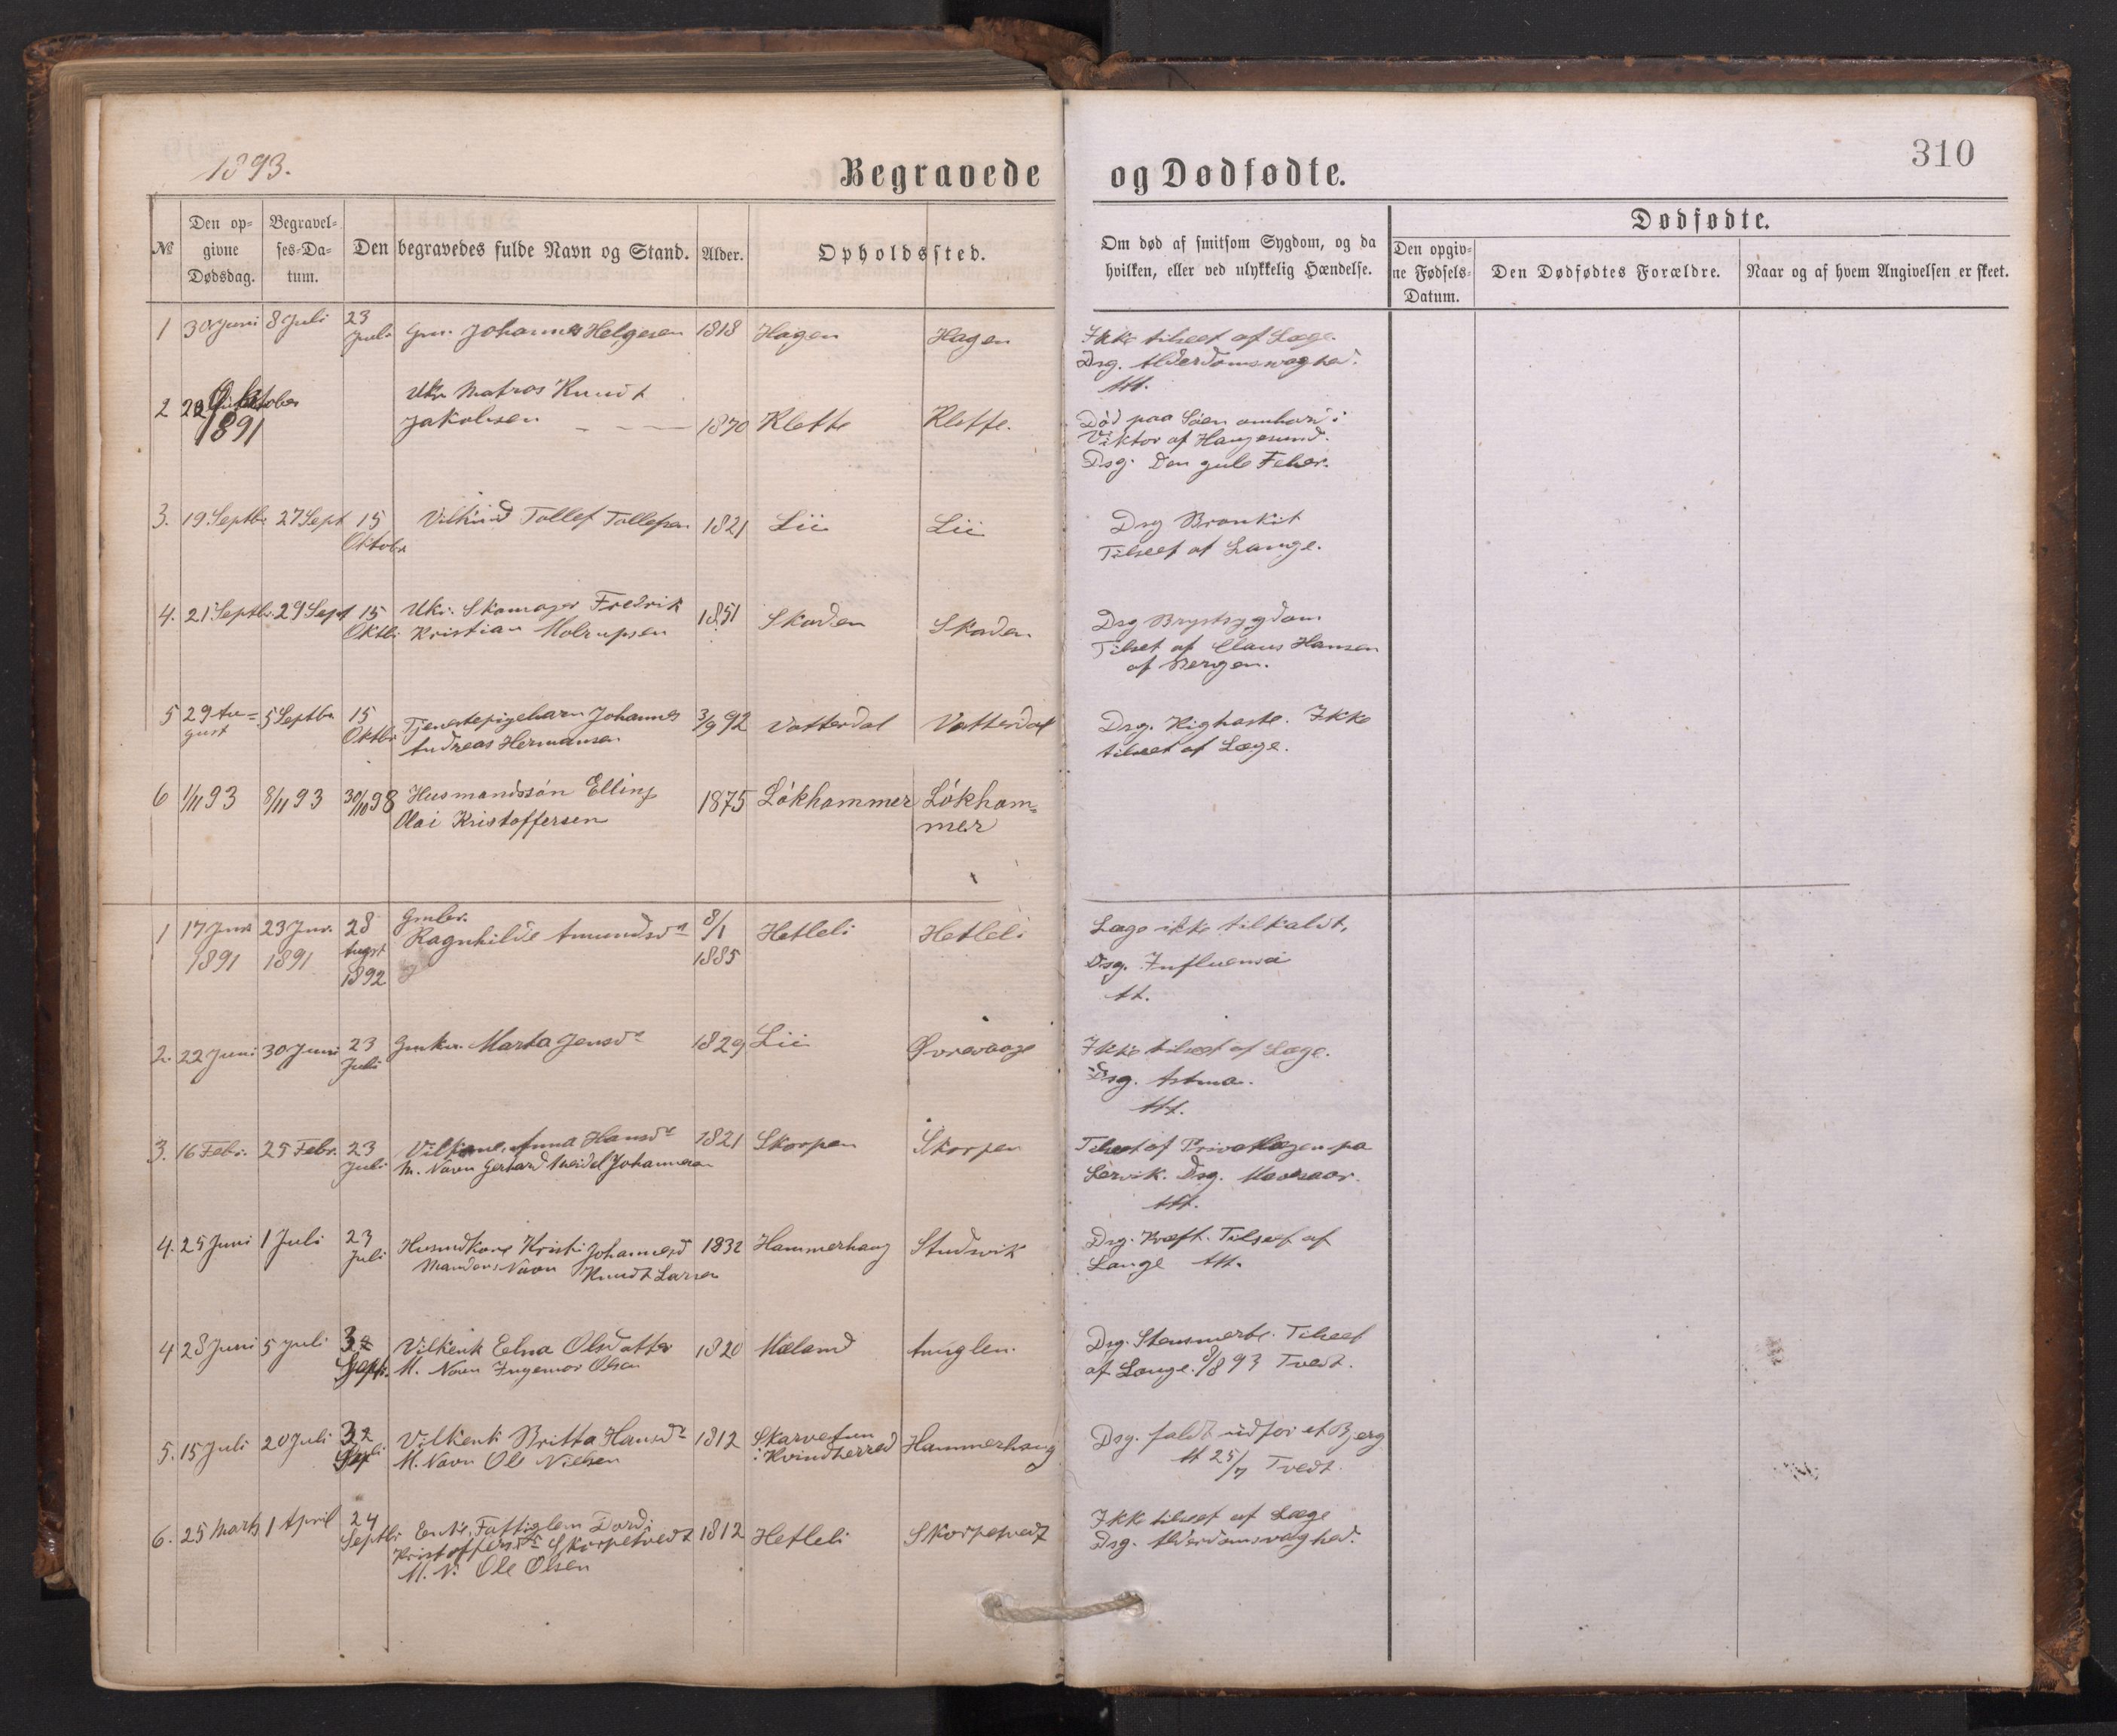 310
1893.
Begravede og Dødfødte.
№
Den opgivne Dødsdag.
Begravelses-Datum.
Den begravedes fulde Navn og Stand.
Alder.
Opholdssted.
Om død af smitsom Sygdom, og da
hvilken, eller ved ulykkelig Hændelse.
Dødfødte.
Den opgivne Fødsels-Datum.
Den Dødfødtes Forældre.
Naar og af hvem Angivelsen er skeet.
1 30 Juni 8 Juli 23 Juli Gm. Johannes Helgesen 1818 Hagen Hagen Ikke tilseet af Læge.
Dsg. Alderdomsvaghed.
Att.
2 Oktober 1891 Matros Knudt
Jakobsen 1870 Klette Klette. Død paa Søen ombord i
Viktor af Haugesund.
Dsg. Den gule Feber.
3. 19 Septbr 27 Sept 15 Oktobr Tollef Tollefsen 1821 Lii Lii Dsg Bronkit
Tilseet af Lange.
4. 21 Septbr. 29 Sept 15 Oktb. Ukr. Skomager Fredrik
Kristian 1851 Skaden Skaden Dsg Brystsygdom
Tilset af Claus Hansen
af Bergen.
5 29 August 5 Septbr 15 Oktbr Tjenestepigebarn Johannes
Andreas Hermansen 3/9 92 Vatterdal Vatterdal Dsg. Kighoste. Ikke
tilseet af Læge.
6 1/11 93 8/11 93 30/10 98 Husmandssön Elling
Olai Kristoffersen 1875 Lökhammer Lökhammer
1 17 Jnr 1891 23 Jnr. 1891 28 Augst 1892 Gmbr.
Ragnhilde Amundsdr 8/1 1885 Hetleli Hetleli Læge ikke tilkaldt,
Dsg. Influensa
At.
2. 22 Juni 30 Juni 23 Juli Marta Jensdr 1829 Lii Ikke tilseet af Læge.
Dsg. Astma.
Att.
3. 16 Febr. 25 Febr. 23 Juli Anna Hansdr
M. Navn Gerhard Johannesen 1821 Skorpen Skorpen Tilseet af Privatlægen pa
Lervik. Dsg.
Att.
4. 25 Juni 1 Juli 23 Juli Kristi Johannesd
Mandens Navn Knudt Larsen 1832 Hammerhaug Studvik Dsg. Kræft. Tilseet af
Lange Att.
4 28 Juni 5 Juli Sept. Vilkenk Elna Olsdatter
M. Navn Ingemor Olsen 1820 Mæland Dsg. Tilseet
af Lange. 8/8 93 Tvedt.
5. 15 Juli 20 Juli Vilkenk Britta Hansdr
M. Navn Ole Nielsen 1812 i Kvindherred Hammerhaug Dsg. faldt udfor et Bjerg
At 25/7 Tvedt.
6. 25 Marts 1 April 24 Septbr Enke, Fattiglem Dordi
Kristoffersdr Skorpetvedt
M. N. Ole Olsen 1812 Hetleli Skorpetvedt Ikke tilseet af Læge
Dsg. Alderdomsvaghed.